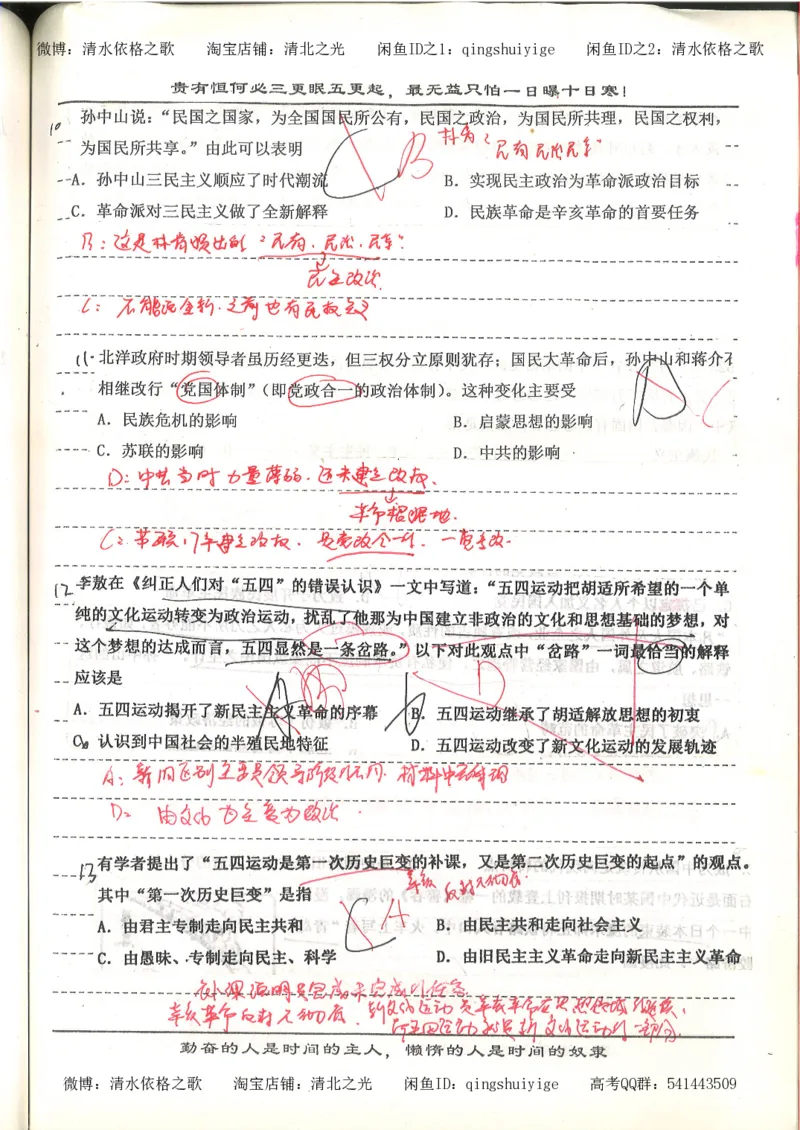 微博：清水依格之歌 淘宝店铺：清北之光 闲鱼ID之1：qingshuiyige 闲鱼ID之2：清水依格之歌
贵有恒何必三更眠五更起，最无益只怕一日曝十日寒！
10 孙中山说：“民国之国家，为全国国民所公有，民国之政治，为国民所共理，民国之权利，
为国民所共享。”由此可以表明
C B 林肯：民有民治民享
A．孙中山三民主义顺应了时代潮流 B．实现民主政治为革命派政治目标
C．革命派对三民主义做了全新解释 D．民族革命是辛亥革命的首要任务
B：这是林肯提出的“民有、民治、民享”
民主政治
C：不能说全新，之前也有民权主义
11. 北洋政府时期领导者虽历经更迭，但三权分立原则犹存；国民大革命后，孙中山和蒋介石
相继改行“党国体制”（即党政合一的政治体制）。这种变化主要受
D C
A．民族危机的影响 B．启蒙思想的影响
C．苏联的影响 D．中共的影响
D：中共当时力量薄弱，还未建立政权、
革命根据地.
C：苏联17年建立政权，是党政合一体、一党专政.
12 李敖在《纠正人们对“五四”的错误认识》一文中写道：“五四运动把胡适所希望的一个单
纯的文化运动转变为政治运动，扰乱了他那为中国建立非政治的文化和思想基础的梦想，对
这个梦想的达成而言，五四显然是一条岔路。”以下对此观点中“岔路”一词最恰当的解释
应该是
A D
A．五四运动揭开了新民主主义革命的序幕 B．五四运动继承了胡适解放思想的初衷
C．认识到中国社会的半殖民地特征 D．五四运动改变了新文化运动的发展轨迹
A：新旧区别主要是领导阶级不同，材料中无体现
D：由文化为主变为政治
13 有学者提出了“五四运动是第一次历史巨变的补课，又是第二次历史巨变的起点”的观点。
辛亥 反封不彻底.
其中“第一次历史巨变”是指
C A
A．由君主专制走向民主共和 B．由民主共和走向社会主义
C．由愚昧、专制走向民主、科学 D．由旧民主主义革命走向新民主主义革命
补课说明是完成未完成的任务
辛亥革命反封不彻底，新文化运动是辛亥革命在思想领域的延续，
而五四运动就是新文化运动的一部分
勤奋的人是时间的主人，懒惰的人是时间的奴隶
微博：清水依格之歌 淘宝店铺：清北之光 闲鱼ID：qingshuiyige 高考QQ群：541443509